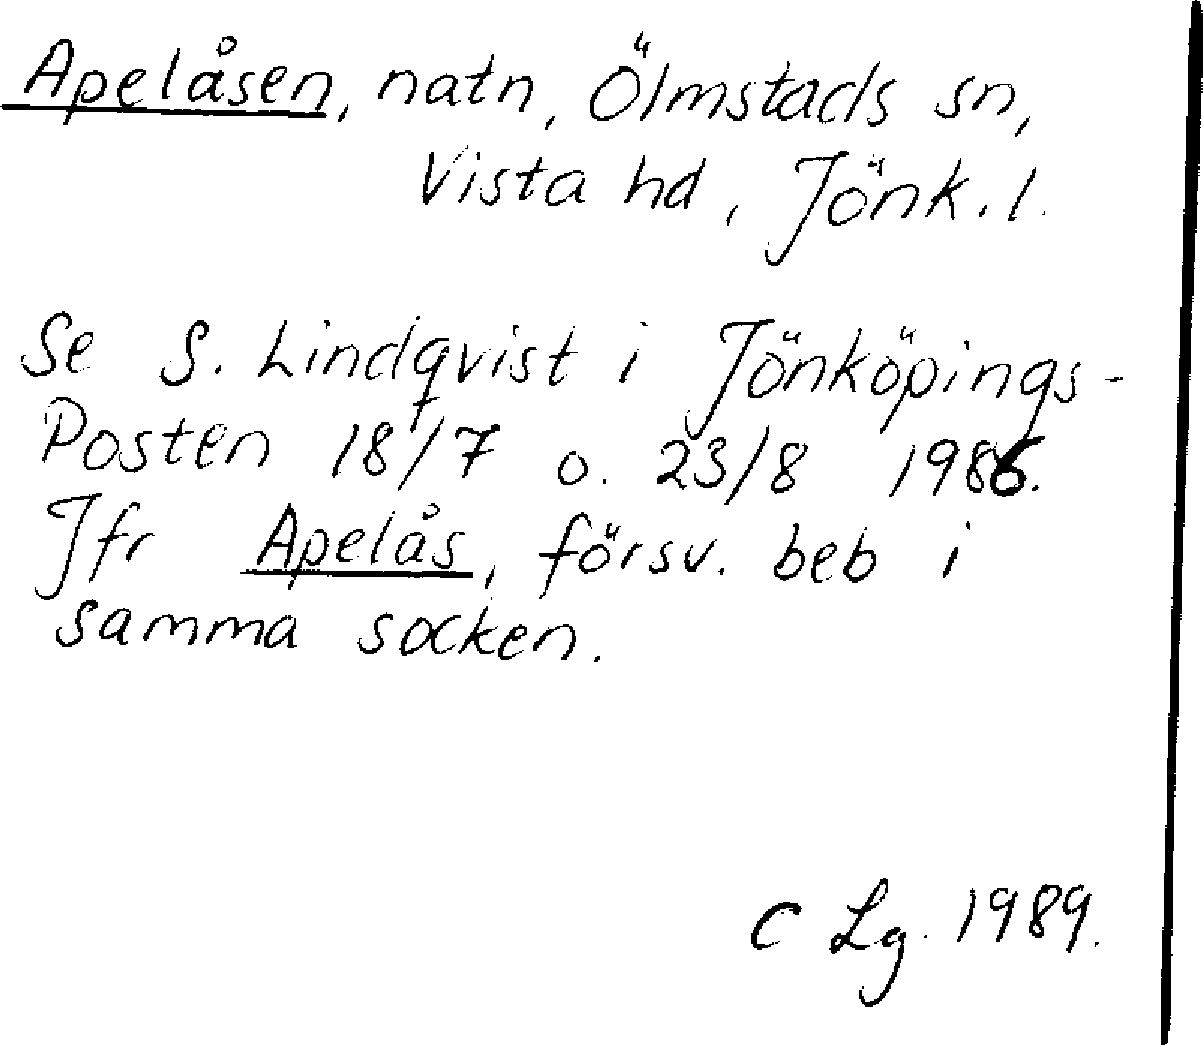 Apelåsen, natn, Ölmstads sn,
Vista hd, Jönk. l.
Se S. Lindqvist i Jönköpings-
Posten 18/7 o. 23/8 1986.
Jfr Apelås, försv. beb i
samma socken.
C Lg. 1989.